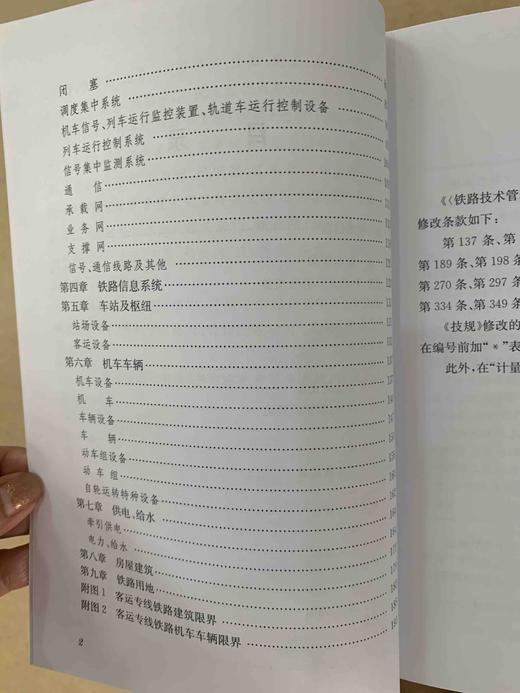 闭　　塞
调度集中系统
机车信号、列车运行监控装置、轨道车运行控制设备
列车运行控制系统
信号集中监测系统
通　　信
承 载 网
业 务 网
支 撑 网
信号、通信线路及其他
第四章　铁路信息系统
第五章　车站及枢纽
站场设备
客运设备
第六章　机车车辆
机车设备
机　　车
车辆设备
车　　辆
动车组设备
动 车 组
自轮运转特种设备
第七章　供电、给水
牵引供电
电力、给水
第八章　房屋建筑
第九章　铁路用地
附图 1　客运专线铁路建筑限界
附图 2　客运专线铁路机车车辆限界
2
《〈铁路技术管
修改条款如下：
第 137 条、第
第 189 条、第 198 条
第 270 条、第 297 条
第 334 条、第 349 条
《技规》修改的
在编号前加“＊”表
此外，在“计量